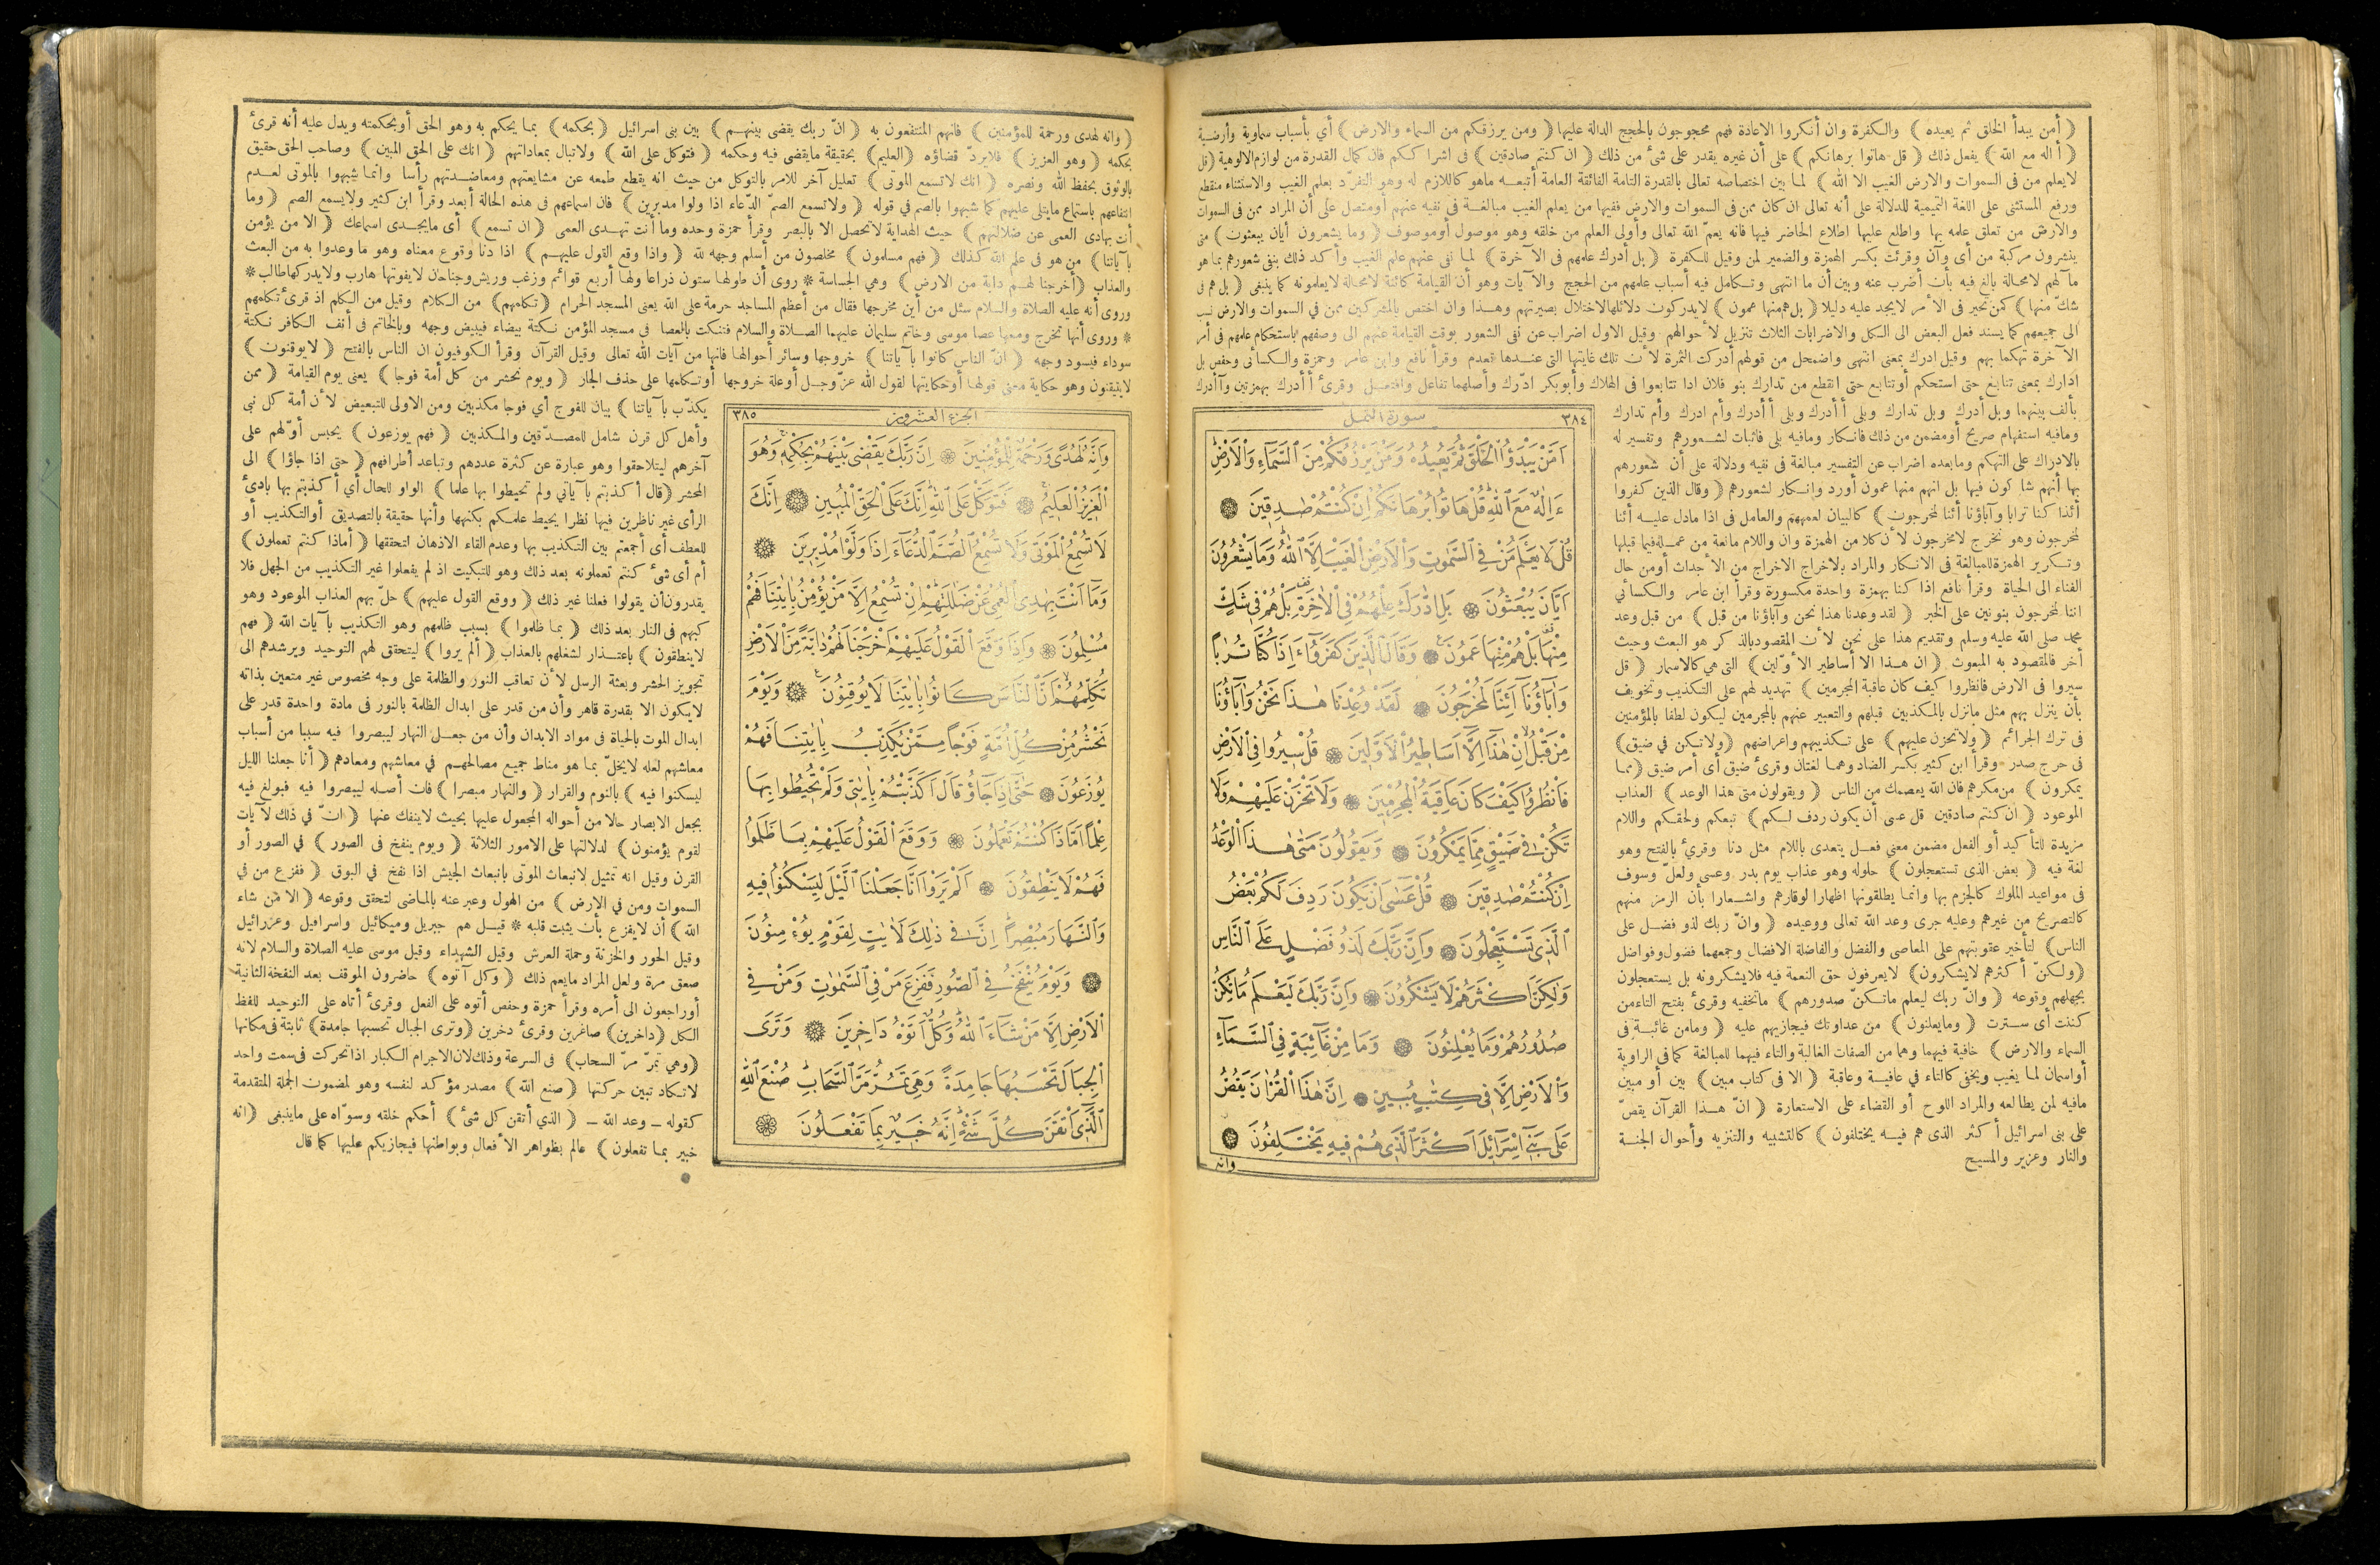 ﴿ أمن يبدأ الخلق ثم يعيده ﴾ والكفرة وان أنكروا الاعادة فهم محجوجون بالحجج الدالة عليها ﴿ ومن يرزقكم من السماء والارض ﴾ أي بأسباب سماوية وأرضية
﴿ أاله مع الله ﴾ يفعل ذلك ﴿ قل هاتوا برهانكم ﴾ على أن غيره يقدر على شئ من ذلك ﴿ ان كنتم صادقين ﴾ فى اشراككم فان كمال القدرة من لوازم الالوهية ﴿ قل
لايعلم من فى السموات والارض الغيب الا الله ﴾ لما بين اختصاصه تعالى بالقدرة التامة الفائقة العامة أتبعه ماهو كاللازم له وهو التفرّد بعلم الغيب والاستثناء منقطع
ورفع المستثنى على اللغة التميمية للدلالة على أنه تعالى ان كان ممن فى السموات والارض ففيها من يعلم الغيب مبالغة فى نفيه عنهم أومتصل على أن المراد ممن فى السموات
والارض من تعلق علمه بها واطلع عليها اطلاع الحاضر فيها فانه يعمّ الله تعالى وأولى العلم من خلقه وهو موصول أوموصوف ﴿ وما يشعرون أيان يبعثون ﴾ متى
ينشرون مركبة من أى وآن وقرئت بكسر الهمزة والضمير لمن وقيل للكفرة ﴿ بل أدرك علمهم فى الآخرة ﴾ لما نفى عنهم علم الغيب وأكد ذلك بنفى شعورهم بما هو
مآلهم لامحالة بالغ فيه بأن أضرب عنه وبين أن ما انتهى وتكامل فيه أسباب علمهم من الحجج والآيات وهو أن القيامة كائنة لامحالة لايعلمونه كما ينبغى ﴿ بل هم فى
شك منها ﴾ كمن تحير فى الأمر لايجد عليه دليلا ﴿ بل هم منها عمون ﴾ لايدركون دلائلها لاختلال بصيرتهم وهذا وان اختص بالمشركين ممن في السموات والارض نسب
الى جميعهم كما يسند فعل البعض الى الكل والاضرابات الثلاث تنزيل لأحوالهم وقيل الاول اضراب عن نفى الشعور بوقت القيامة عنهم الى وصفهم باستحكام علمهم فى أمر
الآخرة تهكما بهم وقيل ادرك بمعنى انتهى واضمحل من قولهم أدركت الثمرة لأن تلك غايتها التى عندها تعدم وقرأ نافع وابن عامر وحمزة والكسائى وحفص بل
ادارك بمعنى تتابع حتى استحكم أوتتابع حتى انقطع من تدارك بنو فلان اذا تتابعوا فى الهلاك وأبوبكر ادّرك وأصلهما تفاعل وافتعل وقرئ أأدرك بهمزتين وآأدرك
بألف بينهما وبل أدرك وبل تدارك وبلى أأدرك وبلى أأدرك وأم ادرك وأم تدارك
ومافيه استفهام صريح أومضمن من ذلك فانكار ومافيه بلى فاثبات لشعورهم وتفسير له
بالادراك على التهكم ومابعده اضراب عن التفسير مبالغة فى نفيه ودلالة على أن شعورهم
بها أنهم شاكون فيها بل انهم منها عمون أورد وانكار لشعورهم ﴿ وقال الذين كفروا
أئذا كنا ترابا وآباؤنا أئنا لمخرجون ﴾ كالبيان لعمههم والعامل فى اذا مادل عليه أئنا
لمخرجون وهو نخرج لامخرجون لأن كلا من الهمزة وان واللام مانعة من عمله فيما قبلها
وتكرير الهمزة للمبالغة فى الانكار والمراد بالاخراج الاخراج من الأجداث أومن حال
الفناء الى الحياة وقرأ نافع اذا كنا بهمزة واحدة مكسورة وقرأ ابن عامر والكسائي
اننا لمخرجون بنونين على الخبر ﴿ لقد وعدنا هذا نحن وآباؤنا من قبل ﴾ من قبل وعد
محمد صلى الله عليه وسلم وتقديم هذا على نحن لأن المقصود بالذكر هو البعث وحيث
أخر فالمقصود به المبعوث ﴿ ان هذا الا أساطير الأولين ﴾ التى هي كالاسمار ﴿ قل
سيروا فى الارض فانظروا كيف كان عاقبة المجرمين ﴾ تهديد لهم على التكذيب وتخويف
بأن ينزل بهم مثل مانزل بالمكذبين قبلهم والتعبير عنهم بالمجرمين ليكون لطفا بالمؤمنين
فى ترك الجرائم ﴿ ولاتحزن عليهم ﴾ على تكذيبهم واعراضهم ﴿ ولاتكن في ضيق ﴾
فى حرج صدر وقرأ ابن كثير بكسر الضاد وهما لغتان وقرئ ضيق أى أمر ضيق ﴿ مما
يمكرون ﴾ من مكرهم فان الله يعصمك من الناس ﴿ ويقولون متى هذا الوعد ﴾ العذاب
الموعود ﴿ ان كنتم صادقين قل عسى أن يكون ردف لكم ﴾ تبعكم ولحقكم واللام
مزيدة للتأكيد أو الفعل مضمن معنى فعل يتعدى باللام مثل دنا وقرئ بالفتح وهو
لغة فيه ﴿ بعض الذى تستعجلون ﴾ حلوله وهو عذاب يوم بدر وعسى ولعلّ وسوف
فى مواعيد الملوك كالجزم بها وانما يطلقونها اظهارا لوقارهم واشعارا بأن الرمز منهم
كالتصريح من غيرهم وعليه جرى وعد الله تعالى ووعيده ﴿ وانّ ربك لذو فضل على
الناس ﴾ لتأخير عقوبتهم على المعاصى والفضل والفاضلة الافضال وجمعهما فضول وفواضل
﴿ ولكنّ أكثرهم لايشكرون ﴾ لايعرفون حق النعمة فيه فلايشكرونه بل يستعجلون
بجهلهم وقوعه ﴿ وانّ ربك ليعلم ماتكنّ صدورهم ﴾ ماتخفيه وقرئ بفتح التاءمن
كننت أى سترت ﴿ ومايعلنون ﴾ من عداوتك فيجازيهم عليه ﴿ ومامن غائبة فى
السماء والارض ﴾ خافية فيهما وهما من الصفات الغالبة والتاء فيهما للمبالغة كما فى الراوية
أواسمان لما يغيب ويخفى كالتاء في عافية وعاقبة ﴿ الا فى كتاب مبين ﴾ بين أو مبين
مافيه لمن يطالعه والمراد اللوح أو القضاء على الاستعارة ﴿ انّ هذا القرآن يقصّ
على بنى اسرائيل أكثر الذى هم فيه يختلفون ﴾ كالتشبيه والتنزيه وأحوال الجنة
والنار وعزير والمسيح
٣٨٤ سورة النمل
اَمَّنْ يَبْدَؤُا الْخَلْقَ ثُمَّ يُعٖيدُهُ وَمَنْ يَرْزُقُكُمْ مِنَ السَّمَٓاءِ وَالْاَرْضِ
ءَاِلٰهٌ مَعَ اللّٰهِ قُلْ هَاتُوا بُرْهَانَكُمْ اِنْ كُنْتُمْ صَادِقٖينَ
قُلْ لَا يَعْلَمُ مَنْ فِي السَّمٰوَاتِ وَالْاَرْضِ الْغَيْبَ اِلَّا اللّٰهُ وَمَا يَشْعُرُونَ
اَيَّانَ يُبْعَثُونَ بَلِ ادَّارَكَ عِلْمُهُمْ فِي الْاٰخِرَةِ بَلْ هُمْ فٖي شَكٍّ
مِنْهَا بَلْ هُمْ مِنْهَا عَمُونَ وَقَالَ الَّذٖينَ كَفَرُٓوا ءَاِذَا كُنَّا تُرَابًا
وَاٰبَٓاؤُنَٓا اَئِنَّا لَمُخْرَجُونَ لَقَدْ وُعِدْنَا هٰذَا نَحْنُ وَاٰبَٓاؤُنَا
مِنْ قَبْلُ اِنْ هٰذَٓا اِلَّٓا اَسَاطٖيرُ الْاَوَّلٖينَ قُلْ سٖيرُوا فِي الْاَرْضِ
فَانْظُرُوا كَيْفَ كَانَ عَاقِبَةُ الْمُجْرِمٖينَ وَلَا تَحْزَنْ عَلَيْهِمْ وَلَا
تَكُنْ فٖي ضَيْقٍ مِمَّا يَمْكُرُونَ وَيَقُولُونَ مَتٰى هٰذَا الْوَعْدُ
اِنْ كُنْتُمْ صَادِقٖينَ قُلْ عَسٰٓى اَنْ يَكُونَ رَدِفَ لَكُمْ بَعْضُ
الَّذٖي تَسْتَعْجِلُونَ وَاِنَّ رَبَّكَ لَذُو فَضْلٍ عَلَى النَّاسِ
وَلٰكِنَّ اَكْثَرَهُمْ لَا يَشْكُرُونَ وَاِنَّ رَبَّكَ لَيَعْلَمُ مَا تُكِنُّ
صُدُورُهُمْ وَمَا يُعْلِنُونَ وَمَا مِنْ غَٓائِبَةٍ فِي السَّمَٓاءِ
وَالْاَرْضِ اِلَّا فٖي كِتَابٍ مُبٖينٍ اِنَّ هٰذَا الْقُرْاٰنَ يَقُصُّ
عَلٰى بَنٖٓي اِسْرَٓائٖلَ اَكْثَرَ الَّذٖي هُمْ فٖيهِ يَخْتَلِفُونَ
وانه
﴿ وانه لهدى ورحمة للمؤمنين ﴾ فانهم المنتفعون به ﴿ انّ ربك يقضى بينهم ﴾ بين بنى اسرائيل ﴿ بحكمه ﴾ بما يحكم به وهو الحق أوبحكمته ويدل عليه أنه قرئ
بحكمه ﴿ وهو العزيز ﴾ فلايردّ قضاؤه ﴿ العليم ﴾ بحقيقة مايقضى فيه وحكمه ﴿ فتوكل على الله ﴾ ولاتبال بمعاداتهم ﴿ انك على الحق المبين ﴾ وصاحب الحق حقيق
بالوثوق بحفظ الله ونصره ﴿ انك لاتسمع الموتى ﴾ تعليل آخر للامر بالتوكل من حيث انه يقطع طمعه عن مشايعتهم ومعاضدتهم رأسا وانما شبهوا بالموتى لعدم
انتفاعهم باستماع مايتلى عليهم كما شبهوا بالصم في قوله ﴿ ولاتسمع الصمّ الدّعاء اذا ولوا مدبرين ﴾ فان اسماعهم فى هذه الحالة أبعد وقرأ ابن كثير ولايسمع الصم ﴿ وما
أنت بهادى العمى عن ضلالتهم ﴾ حيث الهداية لاتحصل الا بالبصر وقرأ حمزة وحده وما أنت تهدى العمى ﴿ ان تسمع ﴾ أى مايجدى اسماعك ﴿ الا من يؤمن
بآياتنا ﴾ من هو فى علم الله كذلك ﴿ فهم مسلمون ﴾ مخلصون من أسلم وجهه لله ﴿ واذا وقع القول عليهم ﴾ اذا دنا وقوع معناه وهو ماوعدوا به من البعث
والعذاب ﴿ أخرجنا لهم دابة من الارض ﴾ وهي الجساسة * روى أن طولها ستون ذراعا ولها أربع قوائم وزغب وريش وجناحان لايفوتها هارب ولايدركها طالب *
وروى أنه عليه الصلاة والسلام سئل من أين مخرجها فقال من أعظم المساجد حرمة على الله يعنى المسجد الحرام ﴿ تكلمهم ﴾ من الكلام وقيل من الكلم اذ قرئ تكلمهم
* وروى أنها تخرج ومعها عصا موسى وخاتم سليمان عليهما الصلاة والسلام فتنكت بالعصا فى مسجد المؤمن نكتة بيضاء فيبيض وجهه وبالخاتم فى أنف الكافر نكتة
سوداء فيسود وجهه ﴿ انّ الناس كانوا بآياتنا ﴾ خروجها وسائر أحوالها فانها من آيات الله تعالى وقيل القرآن وقرأ الكوفيون ان الناس بالفتح ﴿ لايوقنون ﴾
لايتيقنون وهو حكاية معنى قولها أوحكايتها لقول الله عزّوجل أوعلة خروجها أوتكلمها على حذف الجار ﴿ ويوم نحشر من كل أمة فوجا ﴾ يعنى يوم القيامة ﴿ ممن
يكذّب بآياتنا ﴾ بيان للفوج أي فوجا مكذبين ومن الاولى للتبعيض لأن أمة كل نبى
وأهل كل قرن شامل للمصدّقين والمكذبين ﴿ فهم يوزعون ﴾ يحبس أوّلهم على
آخرهم ليتلاحقوا وهو عبارة عن كثرة عددهم وتباعد أطرافهم ﴿ حتى اذا جاؤا ﴾ الى
المحشر ﴿ قال أكذبتم بآياتي ولم تحيطوا بها علما ﴾ الواو للحال أي أكذبتم بها بادئ
الرأى غير ناظرين فيها نظرا يحيط علمكم بكنهها وأنها حقيقة بالتصديق أوالتكذيب أو
للعطف أى أجمعتم بين التكذيب بها وعدم القاء الاذهان لتحققها ﴿ أماذا كنتم تعملون ﴾
أم أى شئ كنتم تعملونه بعد ذلك وهو للتبكيت اذ لم يفعلوا غير التكذيب من الجهل فلا
يقدرون أن يقولوا فعلنا غير ذلك ﴿ ووقع القول عليهم ﴾ حلّ بهم العذاب الموعود وهو
كبهم فى النار بعد ذلك ﴿ بما ظلموا ﴾ بسبب ظلمهم وهو التكذيب بآيات الله ﴿ فهم
لاينطقون ﴾ باعتذار لشغلهم بالعذاب ﴿ ألم يروا ﴾ ليتحقق لهم التوحيد ويرشدهم الى
تجويز الحشر وبعثة الرسل لأن تعاقب النور والظلمة على وجه مخصوص غير متعين بذاته
لايكون الا بقدرة قاهر وأن من قدر على ابدال الظلمة بالنور فى مادة واحدة قدر على
ابدال الموت بالحياة فى مواد الابدان وأن من جعل النهار ليبصروا فيه سببا من أسباب
معاشهم لعله لايخلّ بما هو مناط جميع مصالحهم في معاشهم ومعادهم ﴿ أنا جعلنا الليل
ليسكنوا فيه ﴾ بالنوم والقرار ﴿ والنهار مبصرا ﴾ فان أصله ليبصروا فيه فبولغ فيه
بجعل الابصار حالا من أحواله المجعول عليها بحيث لاينفك عنها ﴿ انّ في ذلك لآيات
لقوم يؤمنون ﴾ لدلالتها على الامور الثلاثة ﴿ ويوم ينفخ فى الصور ﴾ في الصور أو
القرن وقيل انه تمثيل لانبعاث الموتى بانبعاث الجيش اذا نفخ في البوق ﴿ ففزع من في
السموات ومن في الارض ﴾ من الهول وعبر عنه بالماضى لتحقق وقوعه ﴿ الا من شاء
الله ﴾ أن لايفزع بأن يثبت قلبه * قيل هم جبريل وميكائيل واسرافيل وعزرائيل
وقيل الحور والخزنة وحملة العرش وقيل الشهداء وقيل موسى عليه الصلاة والسلام لانه
صعق مرة ولعل المراد مايعم ذلك ﴿ وكل آتوه ﴾ حاضرون الموقف بعد النفخة الثانية
أوراجعون الى أمره وقرأ حمزة وحفص أتوه على الفعل وقرئ أتاه على التوحيد للفظ
الكل ﴿ داخرين ﴾ صاغرين وقرئ دخرين ﴿ وترى الجبال تحسبها جامدة ﴾ ثابتة فى مكانها
﴿ وهي تمرّ مرّ السحاب ﴾ فى السرعة وذلك لان الاجرام الكبار اذا تحركت فى سمت واحد
لاتكاد تبين حركتها ﴿ صنع الله ﴾ مصدر مؤكد لنفسه وهو لمضمون الجملة المتقدمة
كقوله ـ وعد الله ـ ﴿ الذي أتقن كل شئ ﴾ أحكم خلقه وسوّاه على ماينبغى ﴿ انه
خبير بما تفعلون ﴾ عالم بظواهر الأفعال وبواطنها فيجازيكم عليها كما قال
الجزء العشرون ٣٨٥
وَاِنَّهُ لَهُدًى وَرَحْمَةٌ لِلْمُؤْمِنٖينَ اِنَّ رَبَّكَ يَقْضٖي بَيْنَهُمْ بِحُكْمِهٖ وَهُوَ
الْعَزٖيزُ الْعَلٖيمُ فَتَوَكَّلْ عَلَى اللّٰهِ اِنَّكَ عَلَى الْحَقِّ الْمُبٖينِ اِنَّكَ
لَا تُسْمِعُ الْمَوْتٰى وَلَا تُسْمِعُ الصُّمَّ الدُّعَٓاءَ اِذَا وَلَّوْا مُدْبِرٖينَ
وَمَٓا اَنْتَ بِهَادِي الْعُمْيِ عَنْ ضَلَالَتِهِمْ اِنْ تُسْمِعُ اِلَّا مَنْ يُؤْمِنُ بِاٰيَاتِنَا فَهُمْ
مُسْلِمُونَ وَاِذَا وَقَعَ الْقَوْلُ عَلَيْهِمْ اَخْرَجْنَا لَهُمْ دَٓابَّةً مِنَ الْاَرْضِ
تُكَلِّمُهُمْ اَنَّ النَّاسَ كَانُوا بِاٰيَاتِنَا لَا يُوقِنُونَ وَيَوْمَ
نَحْشُرُ مِنْ كُلِّ اُمَّةٍ فَوْجًا مِمَّنْ يُكَذِّبُ بِاٰيَاتِنَا فَهُمْ
يُوزَعُونَ حَتّٰٓى اِذَا جَٓاؤُ قَالَ اَكَذَّبْتُمْ بِاٰيَاتٖي وَلَمْ تُحٖيطُوا بِهَا
عِلْمًا اَمَّاذَا كُنْتُمْ تَعْمَلُونَ وَوَقَعَ الْقَوْلُ عَلَيْهِمْ بِمَا ظَلَمُوا
فَهُمْ لَا يَنْطِقُونَ اَلَمْ يَرَوْا اَنَّا جَعَلْنَا الَّيْلَ لِيَسْكُنُوا فٖيهِ
وَالنَّهَارَ مُبْصِرًا اِنَّ فٖي ذٰلِكَ لَاٰيَاتٍ لِقَوْمٍ يُؤْمِنُونَ
وَيَوْمَ يُنْفَخُ فِي الصُّورِ فَفَزِعَ مَنْ فِي السَّمٰوَاتِ وَمَنْ فِي
الْاَرْضِ اِلَّا مَنْ شَٓاءَ اللّٰهُ وَكُلٌّ اَتَوْهُ دَاخِرٖينَ وَتَرَى
الْجِبَالَ تَحْسَبُهَا جَامِدَةً وَهِيَ تَمُرُّ مَرَّ السَّحَابِ صُنْعَ اللّٰهِ
الَّذٖٓي اَتْقَنَ كُلَّ شَيْءٍ اِنَّهُ خَبٖيرٌ بِمَا تَفْعَلُونَ